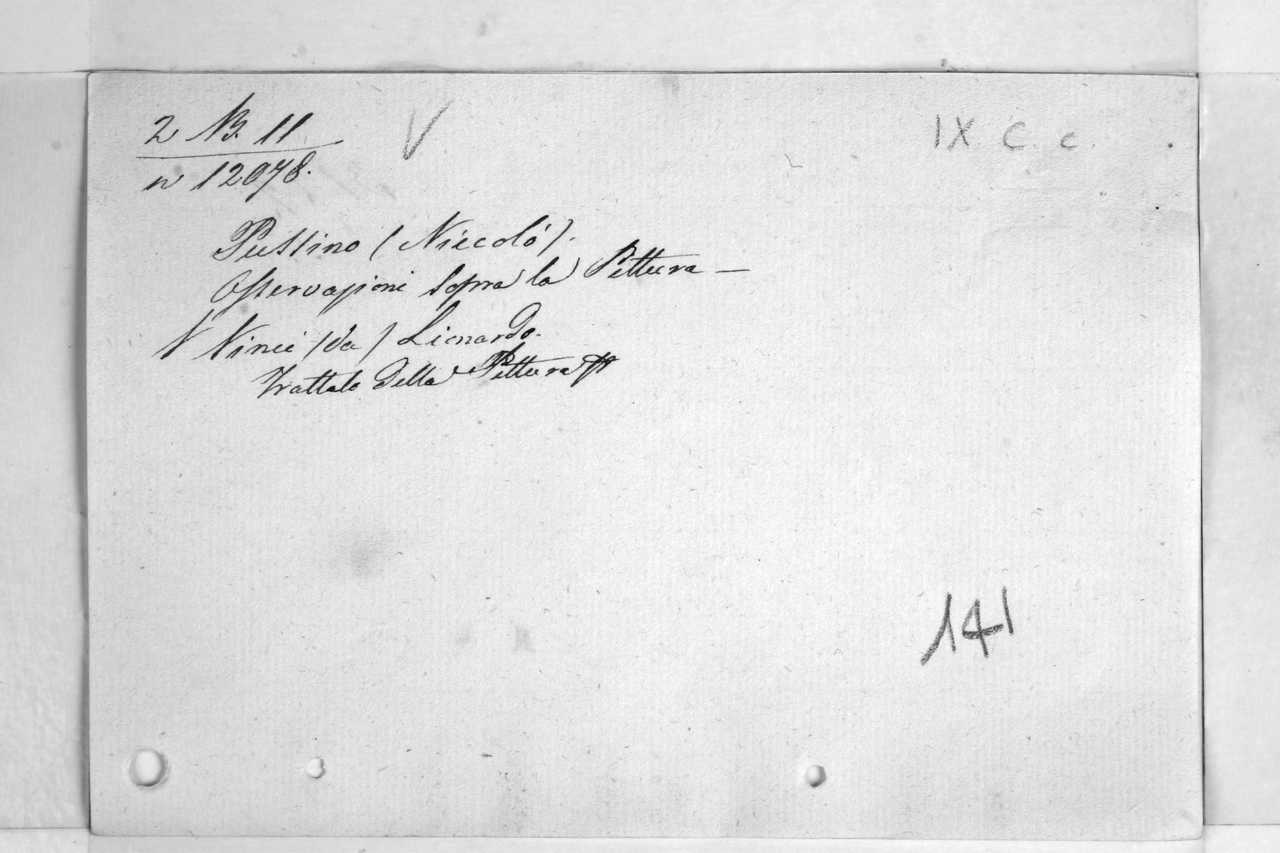 2 B. 11
V
IX C. c.
n 12078.
Pussino (Niccoló).
Osservazioni sopra la Pittura —
V Vinci (da) Lionardo.
Trattato della Pittura
141